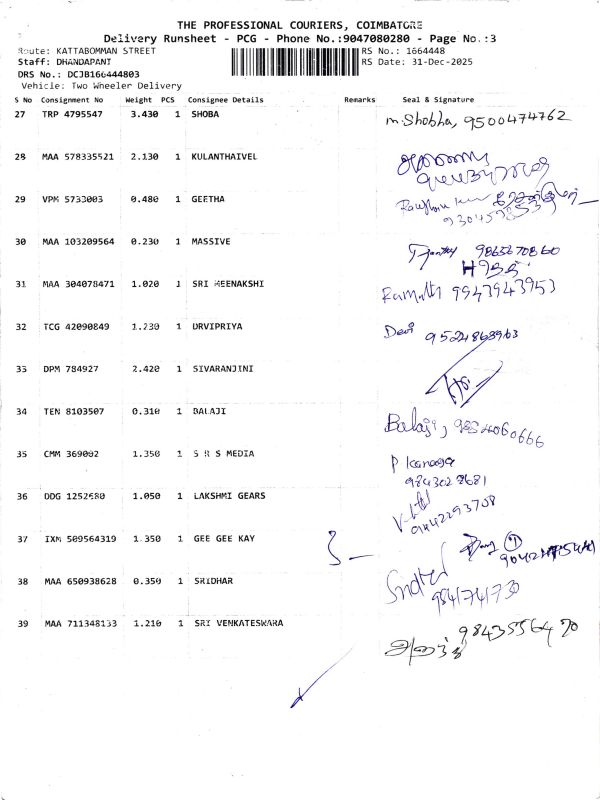 THE PROFESSIONAL COURIERS, COIMBATORE
Delivery Runsheet - PCG - Phone No.:9047080280 - Page No.:3
Route: KATTABOMMAN STREET RS No.: 1664448
Staff: DHANDAPANI RS Date: 31-Dec-2025
DRS No.: DCJB166444803
Vehicle: Two Wheeler Delivery
S No Consignment No Weight PCS Consignee Details Remarks Seal & Signature
27 TRP 4795547 3.430 1 SHOBA m.Shobha, 9500474762
28 MAA 578335521 2.130 1 KULANTHAIVEL
29 VPM 5733003 0.480 1 GEETHA
30 MAA 103209564 0.230 1 MASSIVE 9865670860
31 MAA 304078471 1.020 1 SRI MEENAKSHI 9947943953
32 TCG 42090849 1.230 1 DRVIPRIYA Devi
33 DPM 784927 2.420 1 SIVARANJINI
34 TEN 8103507 0.310 1 BALAJI Balaji,
35 CMM 369002 1.350 1 S R S MEDIA P Kanaga
9843028681
36 DDG 1252680 1.050 1 LAKSHMI GEARS
9442293708
37 IXM 509564319 1.350 1 GEE GEE KAY
38 MAA 650938628 0.350 1 SRIDHAR
39 MAA 711348133 1.210 1 SRI VENKATESWARA 9843556470